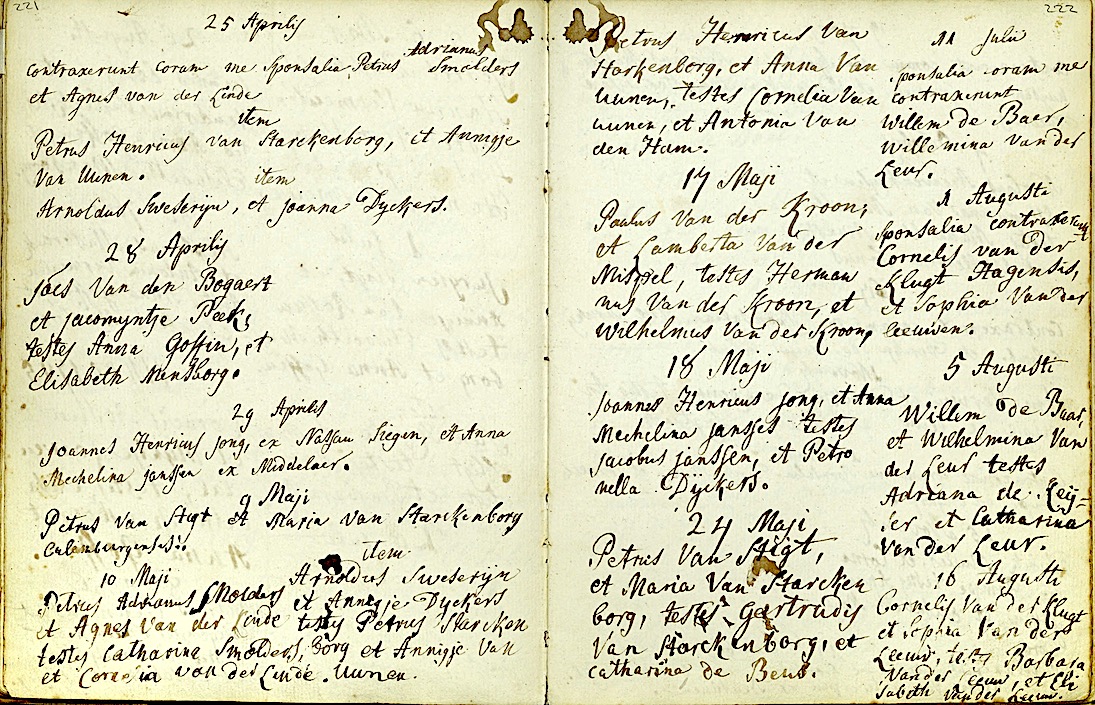 221
25 Aprilis
contraxerunt coram me sponsalia Petrus Adrianus Smolders
et Agnes van der Linde
item
Petrus Henricus van Starckenborg, et Annigje
Van Uunen.
item
Arnoldus Sweserijn, et Joanna Dyckers.
28 Aprilis
Jões Van den Bogaert
et Jacomyntje Peek,
testes Anna Goffin, et
Elisabeth
29 Aprilis
Joannes Henricus Jong, ex Nassau Siegen, et Anna
Mechelina Janssen ex Middelaer.
9 Maji
Petrus Van Stigt et Maria van Starckenborg
Culemburgenses.
10 Maji
Petrus Adrianus Smolders
et Agnes Van der Linde
testes Catharina Smolders,
et Cornelia van der Linde.
item
Arnoldus Sweserijn
et Annigje Dyckers
testes Petrus Starcken
borg et Annigje Van
Uunen.
222
Petrus Henricus Van
Starkenborg, et Anna Van
Uunen, testes Cornelia Van
uunen, et Antonia Van
den Ham.
17 Maji
Paulus Van der Kroon,
et Lamberta Van der
Mispel, testes Herman
nus Van der Kroon, et
Wilhelmus Van der Kroon,
18 Maji
Joannes Henricus Jong, et Anna
Mechelina Janssen testes
Jacobus Janssen, et Petro
nella Dyckers.
24 Maji
Petrus Van Stigt,
et Maria Van Starcken
borg, testes Gertrudis
Van Starckenborg, et
Catharina de Beus.
11 Julii
sponsalia coram me
contraxerunt
Willem de Baer,
Willemina van der
Leur.
1 Augusti
sponsalia contraxerunt
Cornelis van der
Klugt Hagensis,
et Sophia Van der
Leeuwen.
5 Augusti
Willem de Baar,
et Wilhelmina Van
der Leur testes
Adriana de Keij-
ser et Catharina
Van der Leur.
16 Augusti
Cornelis Van der Klugt
et Sophia Van der
Leeuw, testes Barbara
Van der Leeuw, et Eli
sabeth Van der Leeuw.